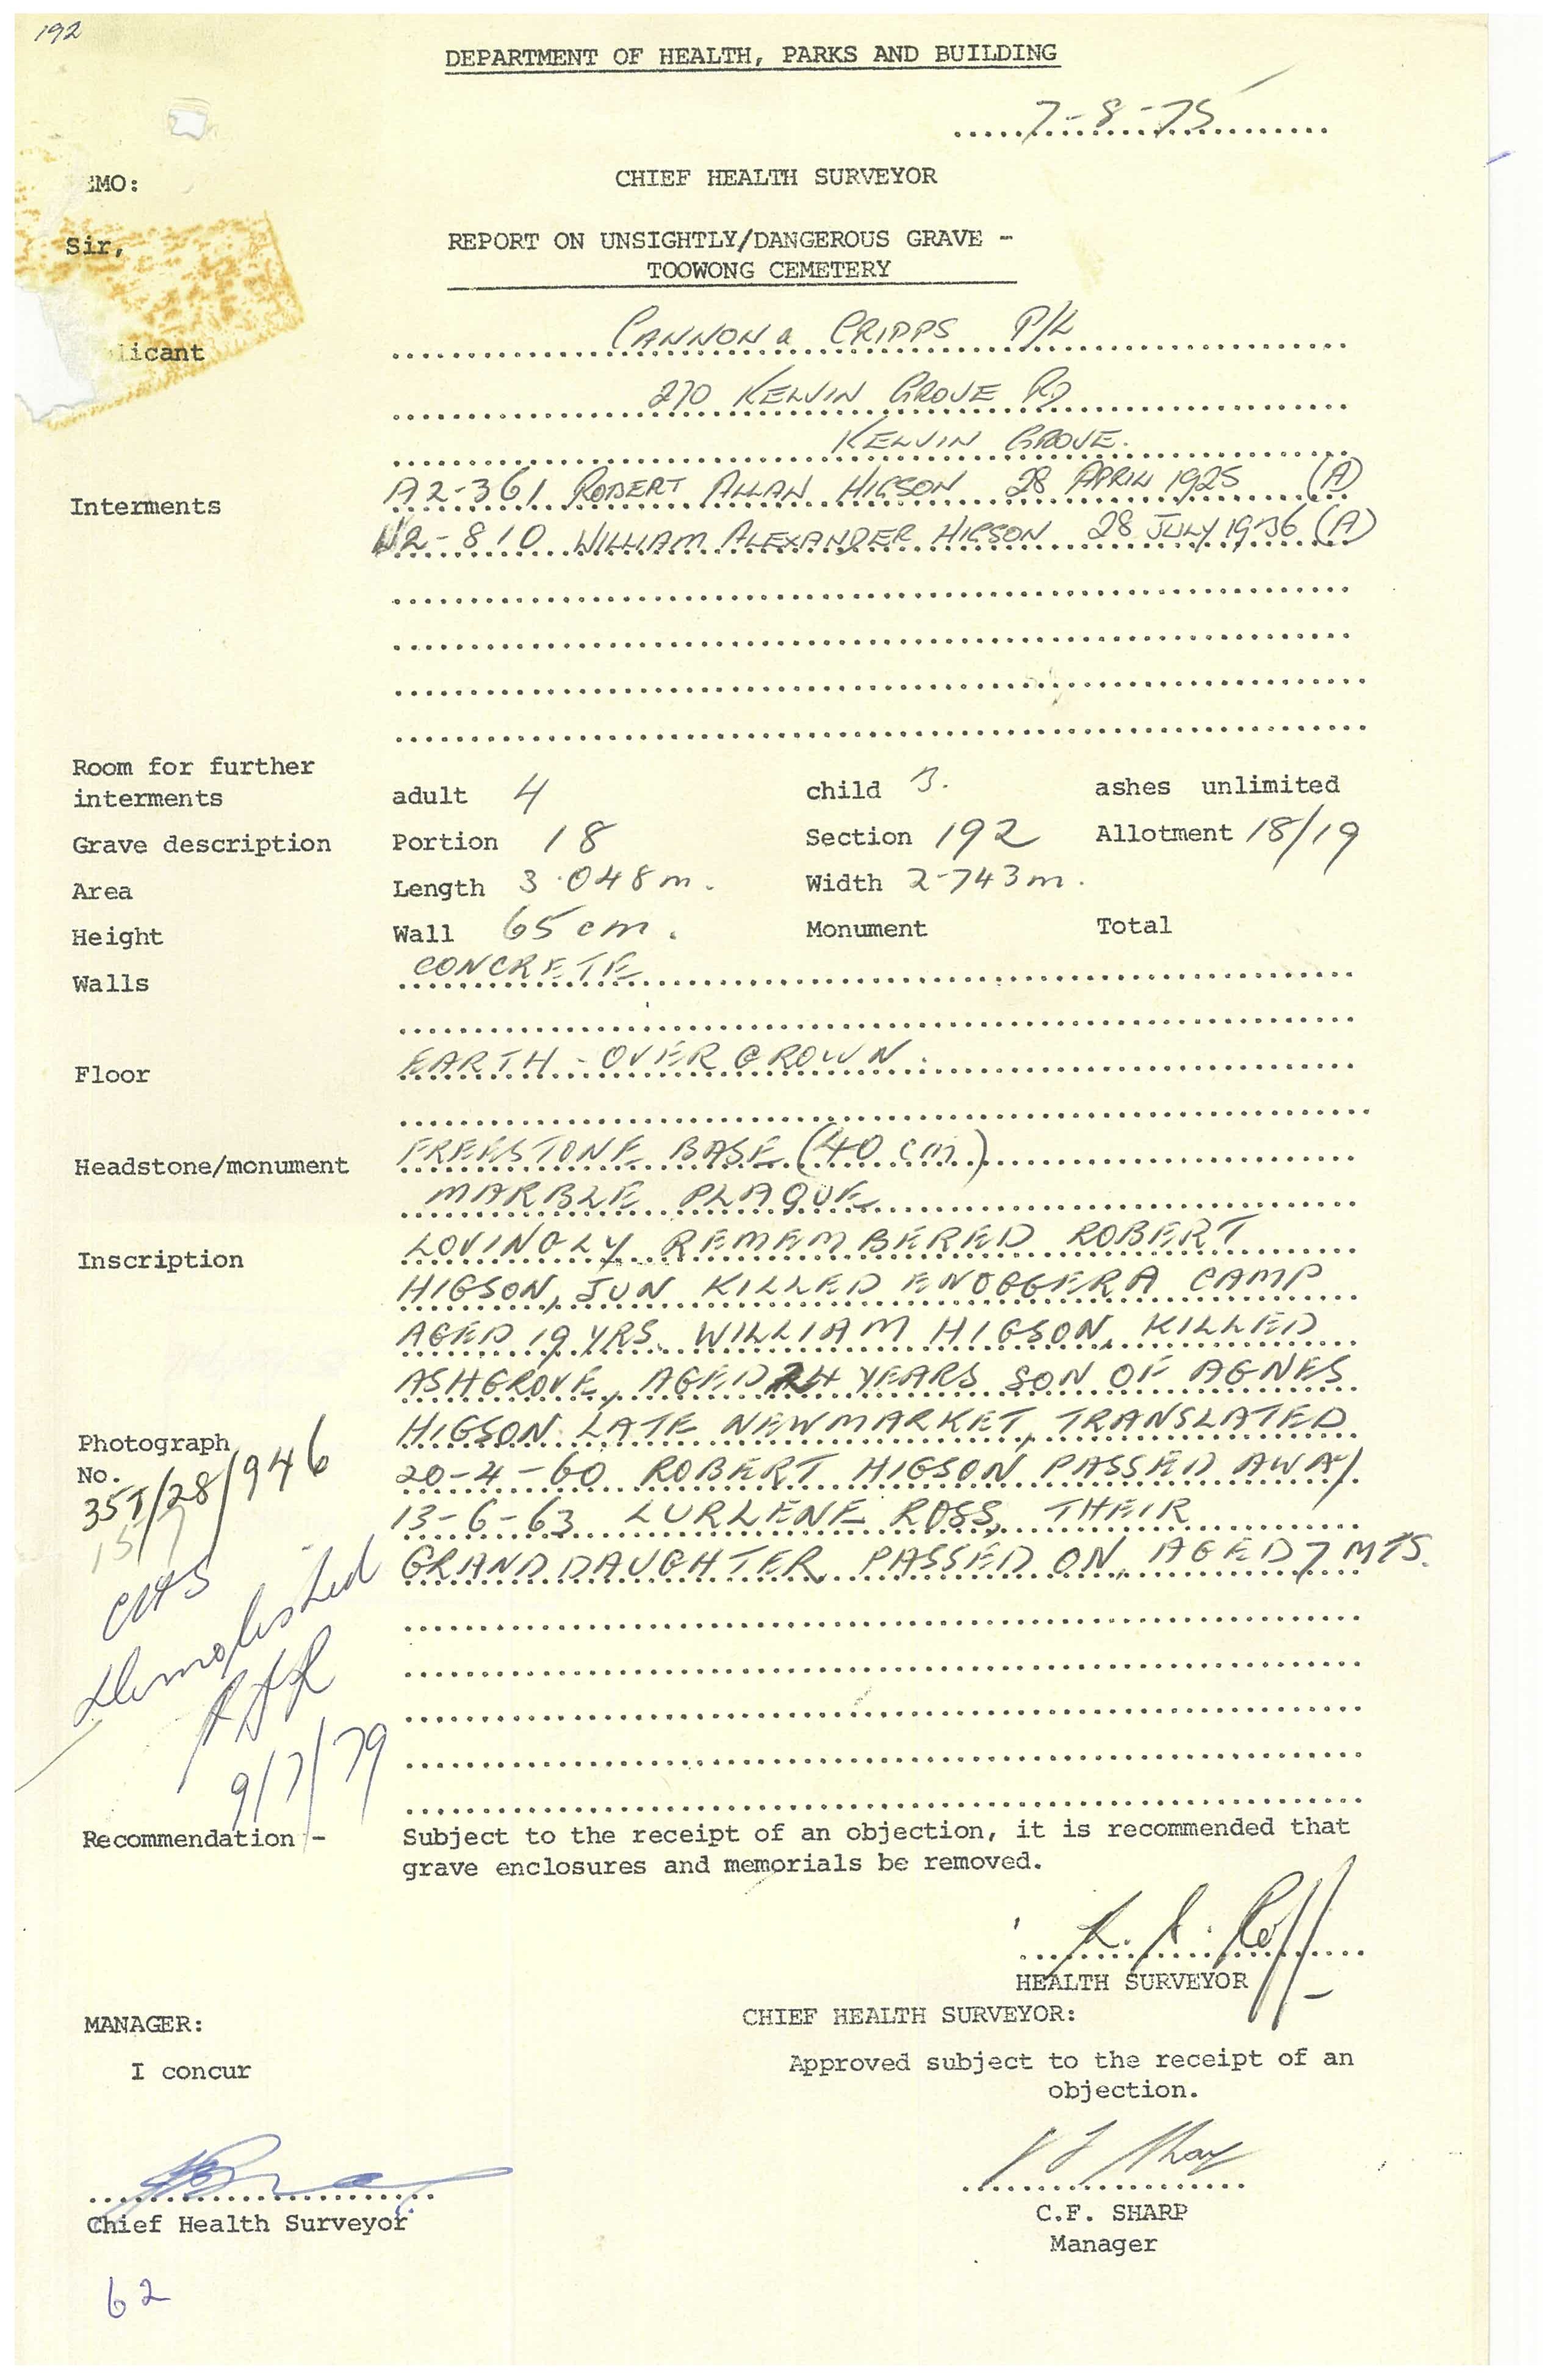 192
DEPARTMENT OF HEALTH, PARKS AND BUILDING
7-8-75
EMO:
CHIEF HEALTH SURVEYOR
Sir,
REPORT ON UNSIGHTLY/DANGEROUS GRAVE -
TOOWONG CEMETERY
licant CANNON & CRIPPS P/L
270 KELVIN GROVE RD
KELVIN GROVE.
Interments A2-361 ROBERT ALLAN HIGSON 28 APRIL 1925 (A)
2-810 WILLIAM ALEXANDER HIGSON 28 JULY 1936 (A)
Room for further
interments adult 4 child 3. ashes unlimited
Grave description Portion 18 Section 192 Allotment 18/19
Area Length 3.048m. Width 2-743m.
Height Wall 65 cm. Monument Total
Walls CONCRETE
Floor EARTH - OVERGROWN.
Headstone/monument FREESTONE BASE (40 cm)
MARBLE PLAQUE
Inscription LOVINGLY REMEMBERED ROBERT
HIGSON, JUN KILLED ENOGGERA CAMP
AGED 19 YRS. WILLIAM HIGSON, KILLED
ASHGROVE, AGED 24 YEARS SON OF AGNES
HIGSON LATE NEWMARKET, TRANSLATED
20-4-60 ROBERT HIGSON PASSED AWAY
13-6-63 LURLENE ROSS, THEIR
GRANDDAUGHTER, PASSED ON, AGED 7 MTS.
Photograph
No.
35T/28/946
Demolished
9/7/79
Recommendation - Subject to the receipt of an objection, it is recommended that
grave enclosures and memorials be removed.
HEALTH SURVEYOR
MANAGER:
CHIEF HEALTH SURVEYOR:
I concur
Approved subject to the receipt of an
objection.
Chief Health Surveyor
C.F. SHARP
Manager
62